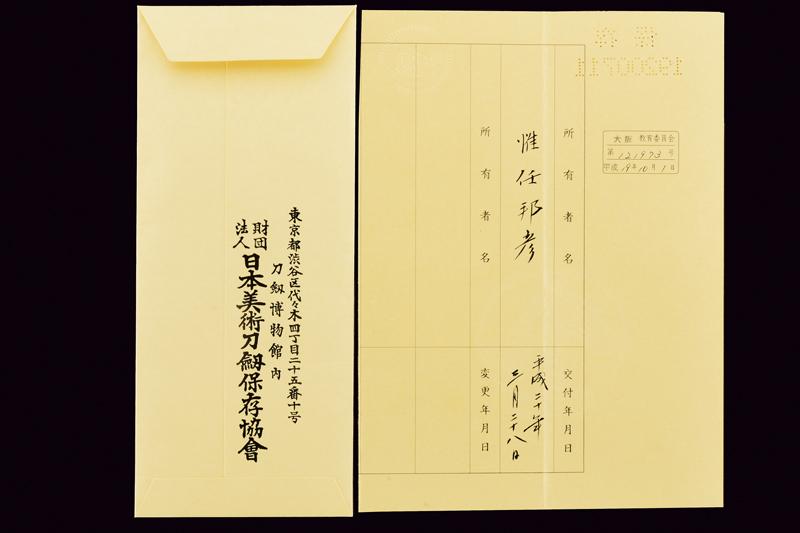 東京都渋谷区代々木四丁目二十五番十号
刀剱博物館内
財団法人
日本美術刀剱保存協會
大阪 教育委員会
第 121973 号
平成 19年10月1日
所有者名
交付年月日
惟任邦彦
平成二十年
三月二十八日
所有者名
変更年月日